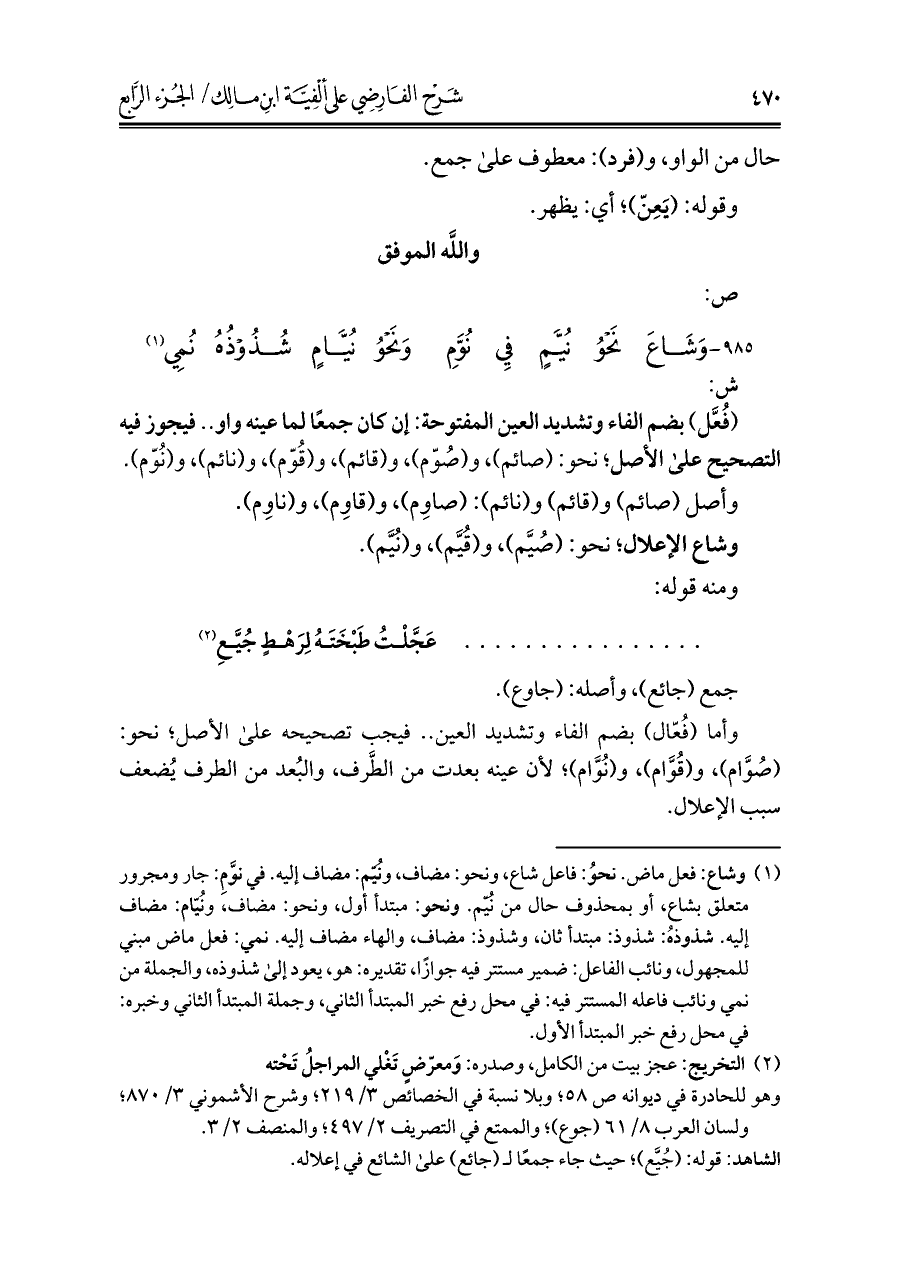 ٤٧٠ شَرْح الفَارِضِي عَلى ألْفِيَّة ابنِ مَالِك / الجُزء الرَّابع
حال من الواو، و(فرد): معطوف علىٰ جمع.
وقوله: (يَعِنّ)؛ أي: يظهر.
واللَّه الموفق
ص:
٩٨٥-وَشَاعَ نَحْوُ نُيَّمٍ فِي نُوَّمِ وَنَحْوُ نُيَّامٍ شُذُوْذُهُ نُمِي(١)
ش:
(فُعَّل) بضم الفاء وتشديد العين المفتوحة: إن كان جمعًا لما عينه واو.. فيجوز فيه
التصحيح علىٰ الأصل؛ نحو: (صائم)، و(صُوّم)، و(قائم)، و(قُوّم)، و(نائم)، و(نُوّم).
وأصل (صائم) و(قائم) و(نائم): (صاوِم)، و(قاوِم)، و(ناوِم).
وشاع الإعلال؛ نحو: (صُيَّم)، و(قُيَّم)، و(نُيَّم).
ومنه قوله:
. . . . . . . . . . . . . . . . عَجَّلْتُ طَبْخَتَهُ لِرَهْطٍ جُيَّعِ(٢)
جمع (جائع)، وأصله: (جاوع).
وأما (فُعّال) بضم الفاء وتشديد العين.. فيجب تصحيحه علىٰ الأصل؛ نحو:
(صُوَّام)، و(قُوَّام)، و(نُوَّام)؛ لأن عينه بعدت من الطَّرف، والبُعد من الطرف يُضعف
سبب الإعلال.
(١) وشاع: فعل ماض. نحوُ: فاعل شاع، ونحو: مضاف، ونُيّم: مضاف إليه. في نوَّمِ: جار ومجرور
متعلق بشاع، أو بمحذوف حال من نُيّم. ونحو: مبتدأ أول، ونحو: مضاف، ونُيّام: مضاف
إليه. شذوذهُ: شذوذ: مبتدأ ثان، وشذوذ: مضاف، والهاء مضاف إليه. نمي: فعل ماض مبني
للمجهول، ونائب الفاعل: ضمير مستتر فيه جوازًا، تقديره: هو، يعود إلىٰ شذوذه، والجملة من
نمي ونائب فاعله المستتر فيه: في محل رفع خبر المبتدأ الثاني، وجملة المبتدأ الثاني وخبره:
في محل رفع خبر المبتدأ الأول.
(٢) التخريج: عجز بيت من الكامل، وصدره: وَمعرّضٍ تَغْلي المراجلُ تَحْته
وهو للحادرة في ديوانه ص ٥٨؛ وبلا نسبة في الخصائص ٣/ ٢١٩؛ وشرح الأشموني ٣/ ٨٧٠؛
ولسان العرب ٨/ ٦١ (جوع)؛ والممتع في التصريف ٢/ ٤٩٧؛ والمنصف ٢/ ٣.
الشاهد: قوله: (جُيَّع)؛ حيث جاء جمعًا لـ (جائع) علىٰ الشائع في إعلاله.